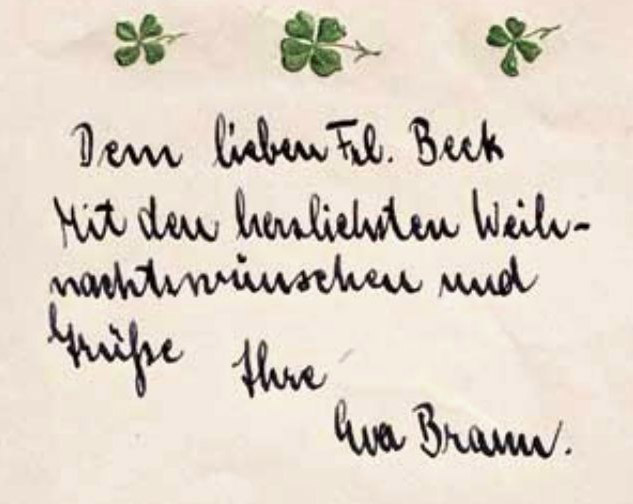 Dem lieben Frl. Beck
Mit den herzlichsten Weih-
nachtswünschen und
Grüße Ihre
Eva Braun.